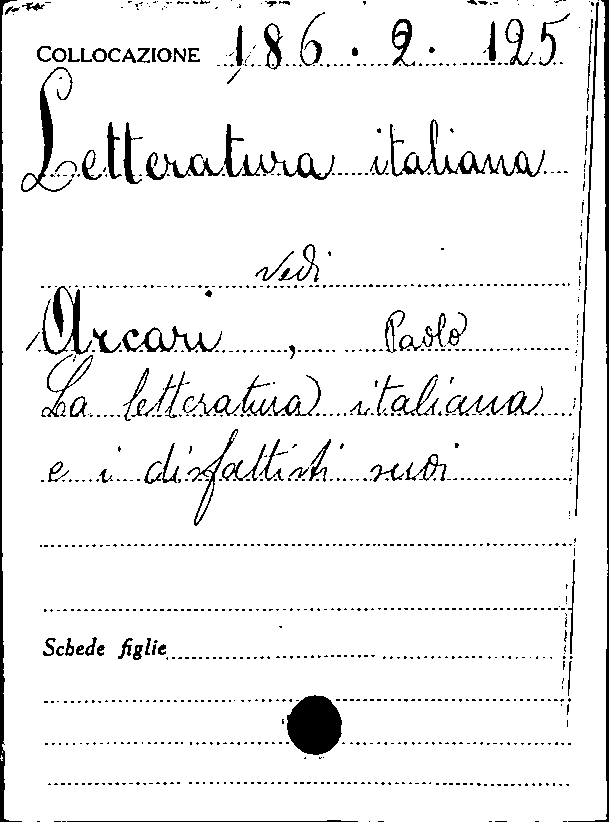 COLLOCAZIONE 186.2.125
Letteratura italiana
vedi
Arcari, Paolo
La letteratura italiana
e i disfattisti suoi
Schede figlie